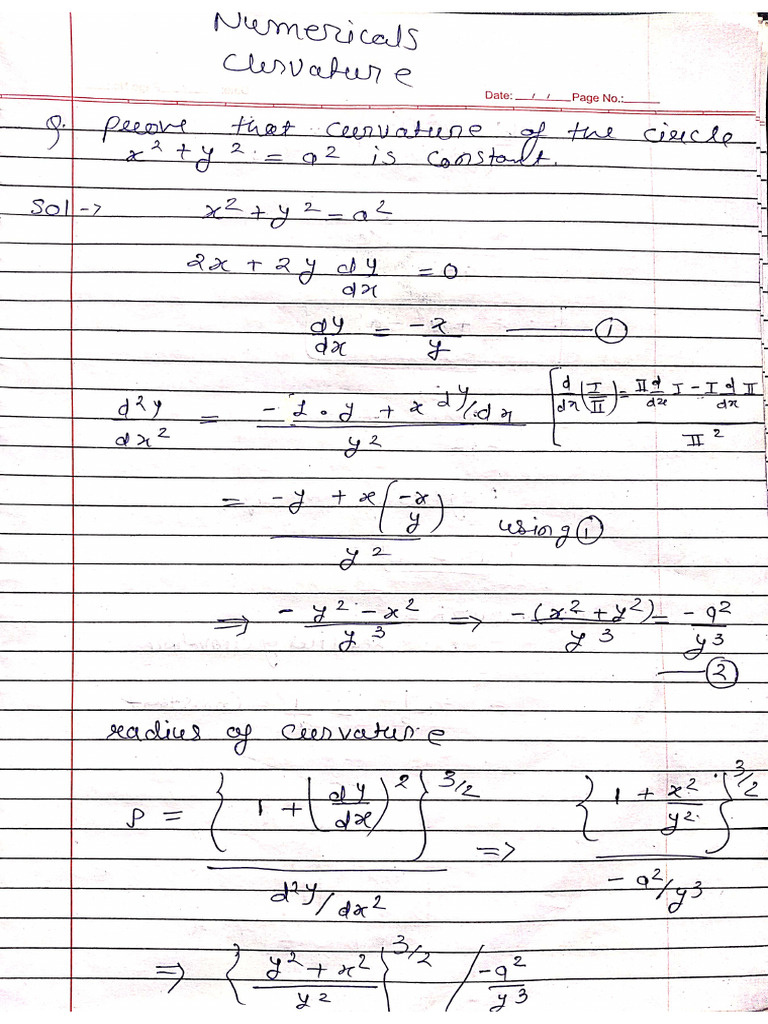 Numericals
Curvature
Date: __/__/__ Page No.:____
Q. Prove that curvature of the circle
x² + y² = a² is constant.
Sol → x² + y² = a²
2x + 2y dy/dx = 0
dy/dx = -x/y ——— ①
d²y/dx² = (-1·y + x dy/dx)/y² [d/dx (I/II) = (II d/dx I - I d/dx II)/II²
= (-y + x(-x/y))/y² using ①
⇒ (-y² - x²)/y³ ⇒ -(x² + y²)/y³ = -a²/y³
—②
radius of curvature
ρ = {1 + (dy/dx)²}^3/2 / (d²y/dx²) ⇒ {1 + x²/y²}^3/2 / (-a²/y³)
⇒ {(y² + x²)/y²}^3/2 / (-a²/y³)